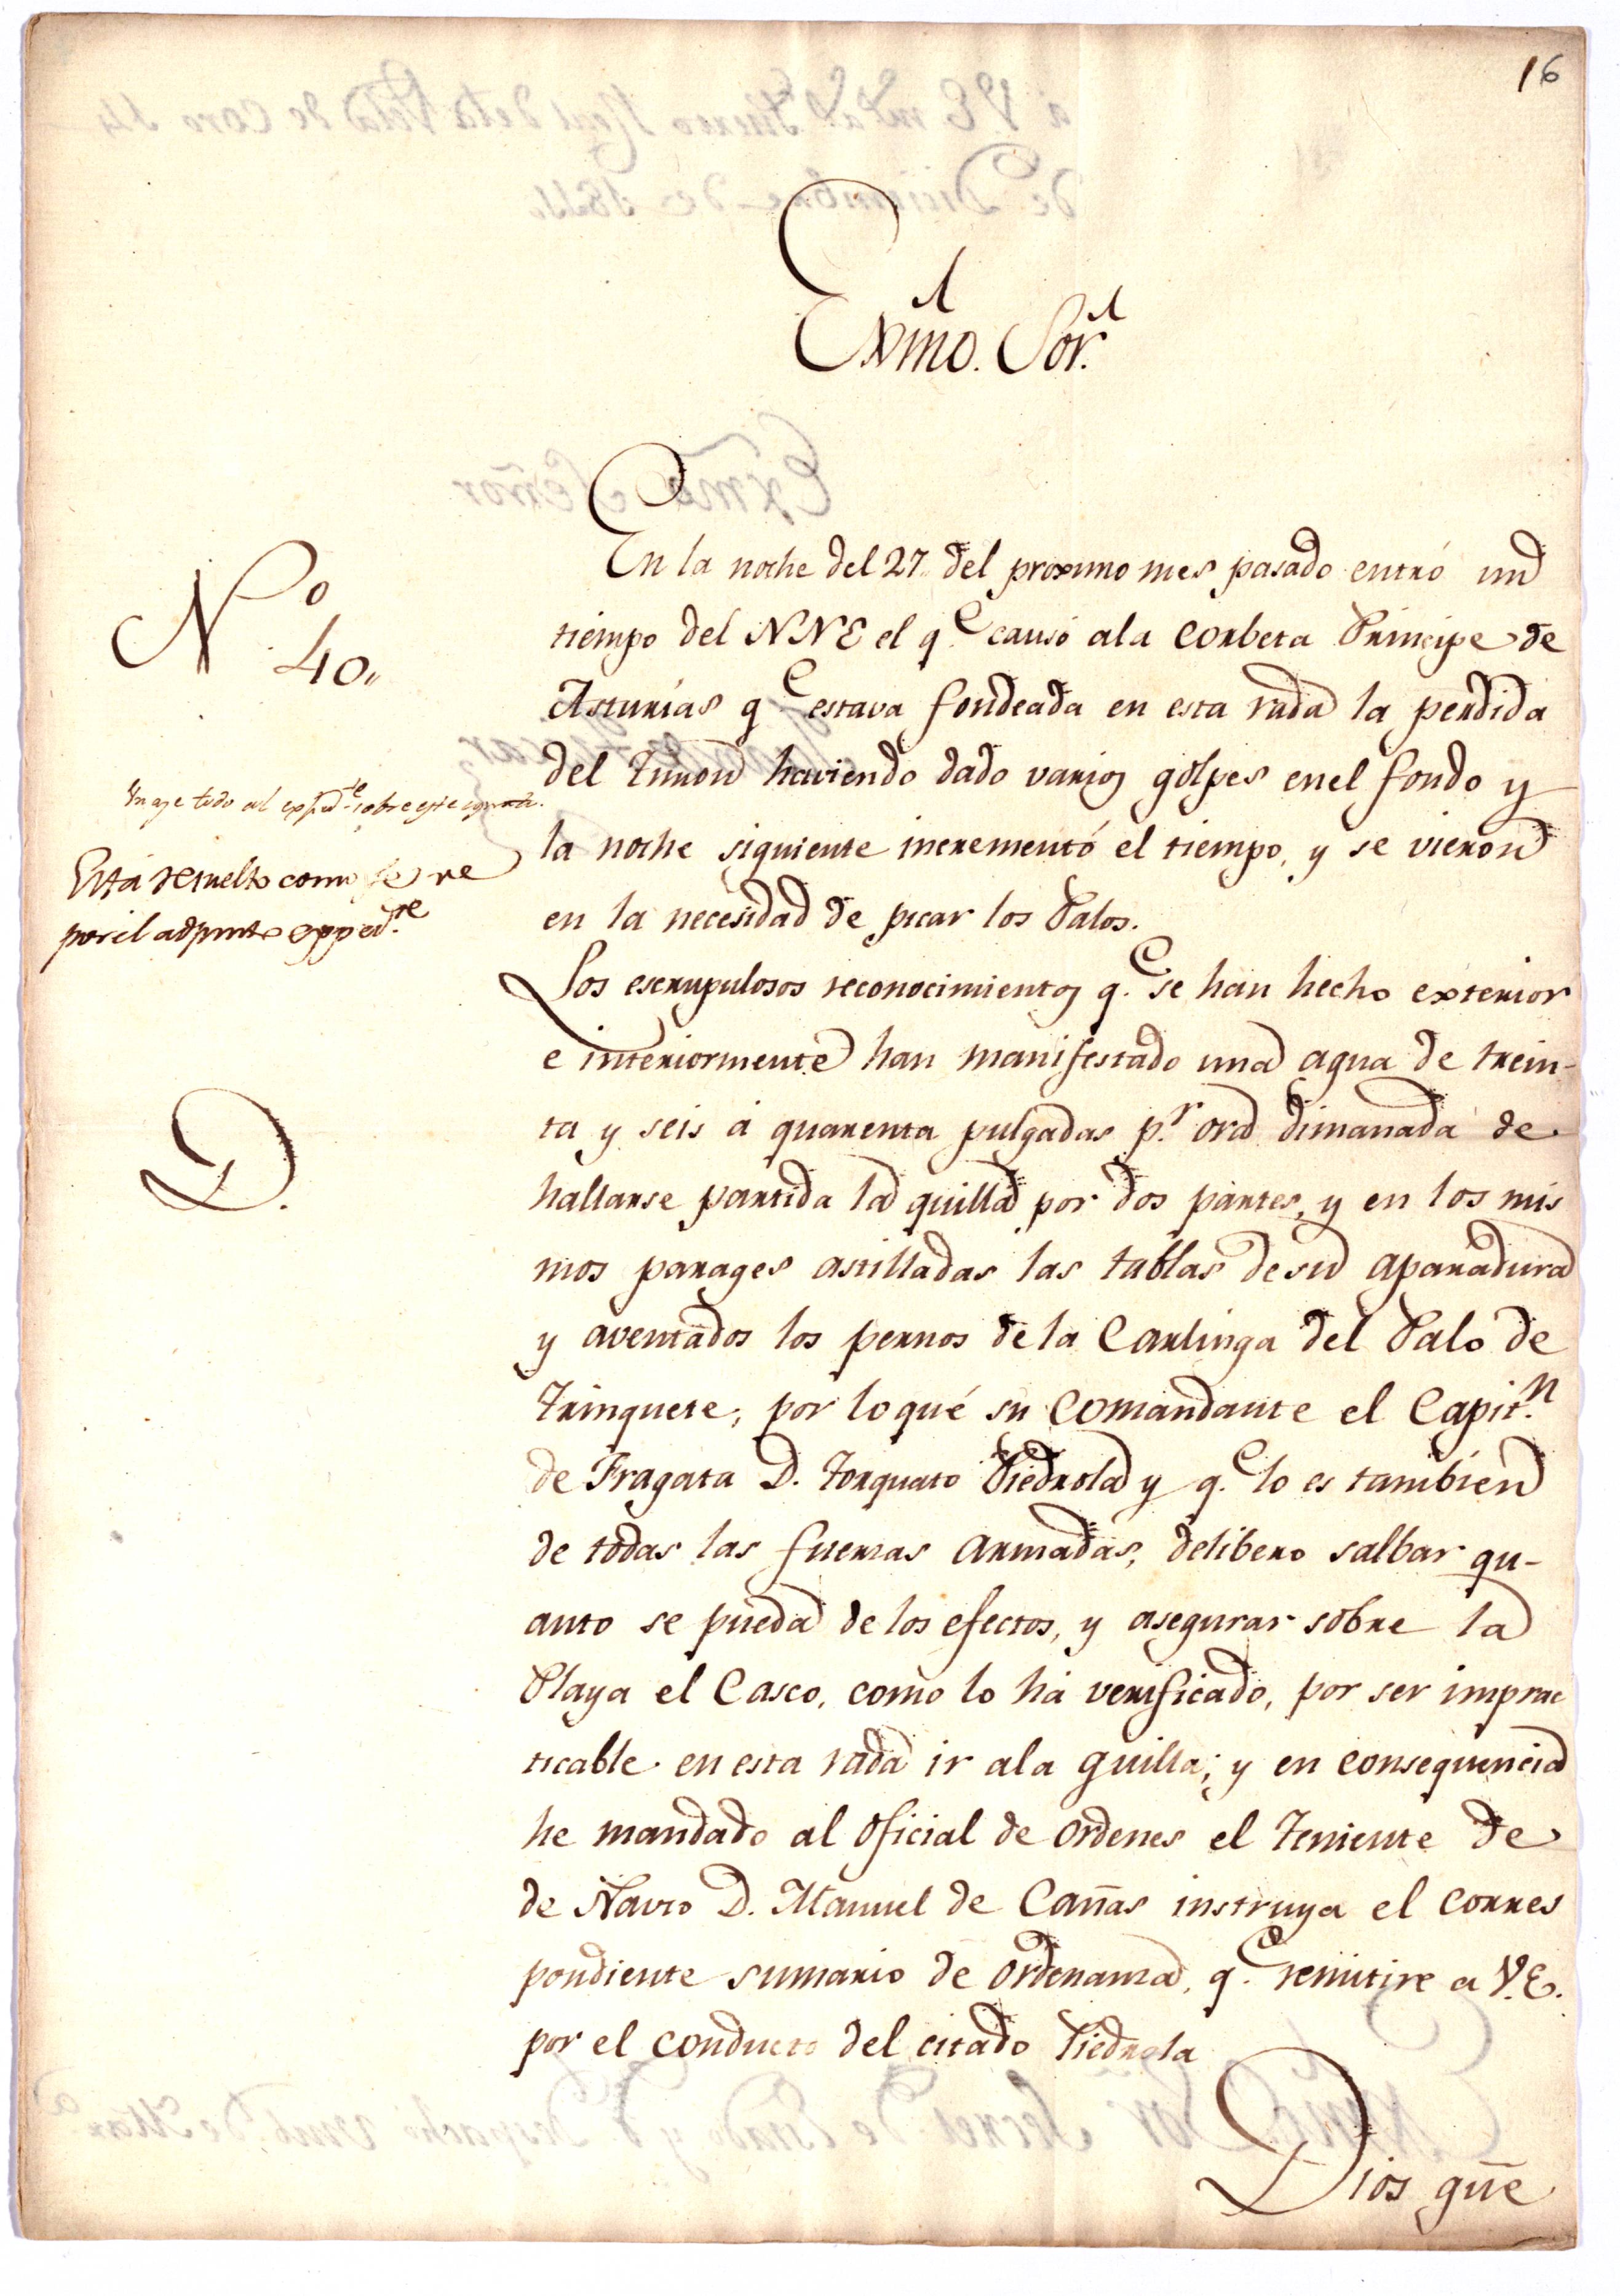 16
Exmo. Sor.
N.o 40,,
En la noche del 27,, del proximo mes pasado entró un
tiempo del NNE el q.e causó ala Corbeta Principe de
Asturias q.e estava fondeada en esta rada la perdida
del Timon haviendo dado varios golpes en el fondo y
la noche siguiente incrementó el tiempo, y se vieron
en la necesidad de picar los Palos.
Los escrupulosos reconocimientos q.e se han hecho exterior
e interiormente han manifestado una agua de trein-
ta y seis á quarenta pulgadas p.r ora dimanada de
hallarse partida la quilla por dos partes, y en los mis
mos parages astilladas las tablas de su aparadura
y aventados los pernos de la Carlinga del Palo de
Trinquete, por lo qué su Comandante el Capit.n
de Fragata D. Torquato Piedrola y q.e lo es tambien
de todas las fuerzas armadas, delibero salbar qu-
anto se pueda de los efectos, y asegurar sobre la
Playa el Casco, como lo há verificado, por ser imprac
ticable en esta rada ir ala quilla; y en consequencia
he mandado al Oficial de ordenes el Teniente de
de Navio D. Manuel de Cañas instruya el corres
pondiente sumario de ordenanza, q.e remitire a V.E.
por el conducto del citado Piedrola
Dios gūe
Unase todo al exped.te sobre este
Está resuelto como se ve
por el adjunto exped.te
D.
á V.E. m.s a.s Puerto Real dela Vela de Coro 14
de Diciembre de 1811.
Exmo Señor
Exmo. Sor Secret.o de Estado y d.l Despacho Unib.l de Mar.a